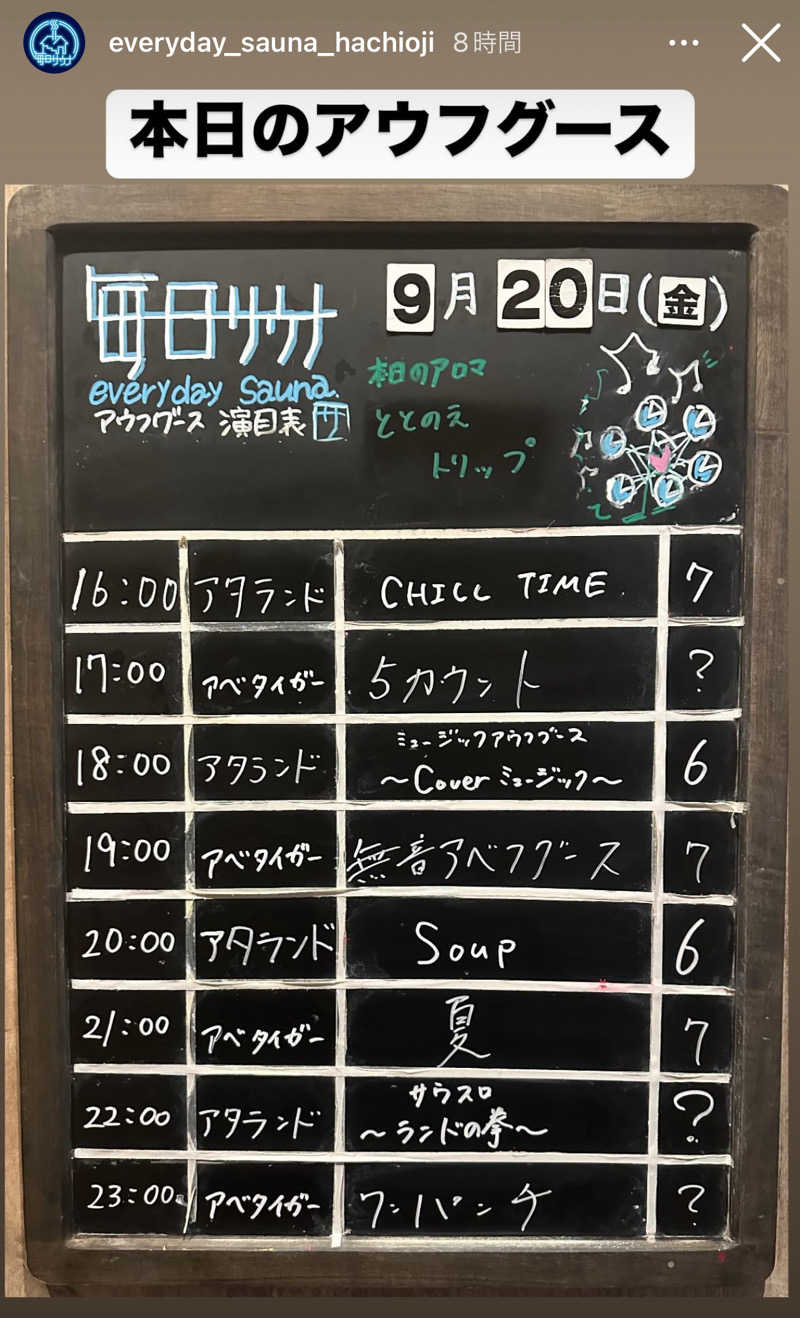 everyday_sauna_hachioji 8時間
本日のアウフグース
毎日サウナ
everyday Sauna.
アウフグース 演目表
9月 20日(金)
本日のアロマ
ととのえ
トリップ
16:00 アタランド CHILL TIME. 7
17:00 アベタイガー 5カウント ?
18:00 アタランド ミュージックアウフグース 6
~Cover ミュージック~
19:00 アベタイガー 無音アベフグース 7
20:00 アタランド Soup 6
21:00 アベタイガー 夏 7
22:00 アタランド サウスロ ?
~ランドの拳~
23:00 アベタイガー ワンパンチ ?